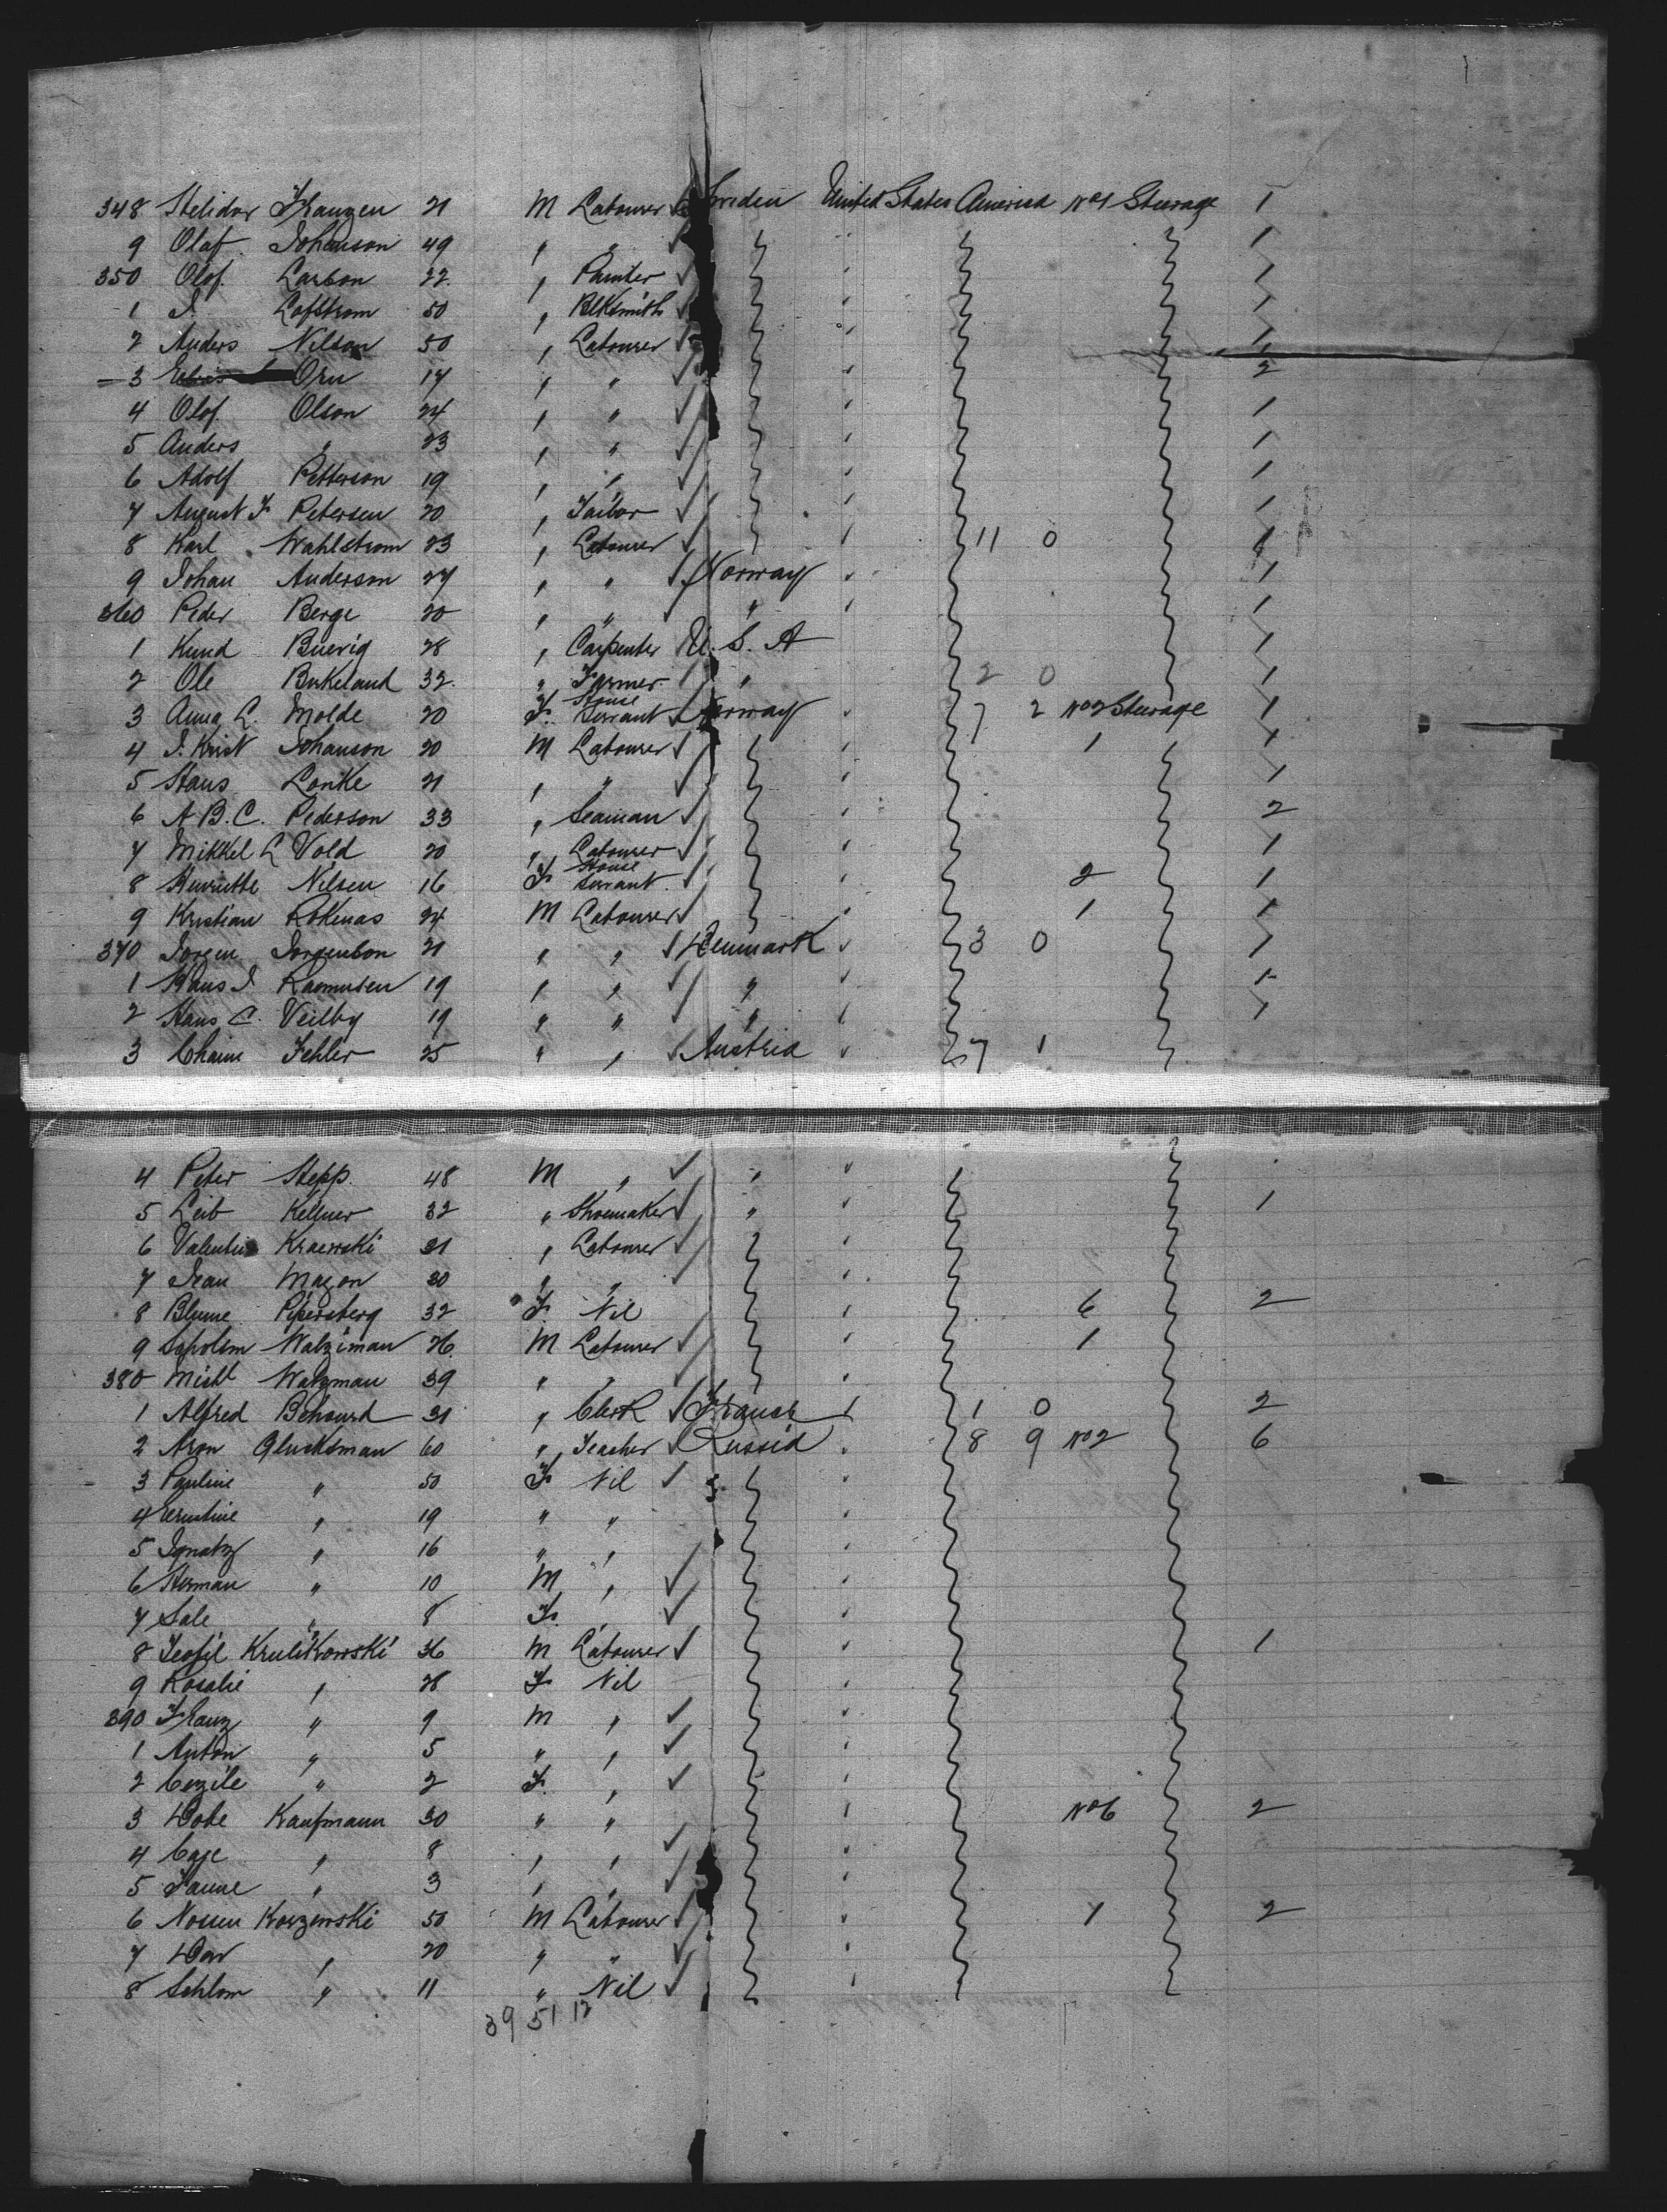 348 Franzen 21 M Labourer Sweden United States America No 1 Steerage 1
9 Olaf Johanson 49 " " 1
350 Olof Larson 22 " Painter 1
1 J. Lofstrom 50 " Blksmith 1
2 Anders Nilson 50 " Labourer 1
3 Orn 17 " " 2
4 Olof Olson 24 " " 1
5 Anders " 23 " " 1
6 Adolf Petterson 19 " " 1
7 August F Petersen 20 " Tailor 1
8 Karl Wahlstrom 23 " Labourer 11 0 1
9 Johan Anderson 27 " " Norway 1
360 Peder Berge 20 " " " 1
1 Knud 28 " Carpenter U. S. A 1
2 Ole Birkeland 32 " Farmer " 2 0 1
3 Anna L. Molde 20 F. House Servant Norway 7 2 No 2 Steerage 1
4 J. Krist Johanson 20 M Labourer 1 1
5 Hans Lonke 21 " " 1
6 A B. C. Pederson 33 " Seaman 2
7 Mikkel L Vold 20 " Labourer 1
8 Henriette Nilsen 16 F. House Servant 2 1
9 Kristian 24 M Labourer 1 1
370 Jorgen Jorgenson 21 " " Denmark 3 0 1
1 Hans J Rasmusen 19 " " " 1
2 Hans C. Veilby 19 " " " 1
3 Chaim Fehler 25 " " Austria 7 1
4 Peter Stepp. 48 M " "
5 Leib Kellner 32 " Shoemaker " 1
6 Valentin Kraewski 21 " Labourer
7 Mazon 30 " "
8 Blume Pipersberg 32 F. Nil 6 2
9 Walziman 26 M Labourer 1
380 Watzman 39 " "
1 Alfred Behourd 31 " Clerk France 1 0 2
2 Aron Glucksman 60 " Teacher Russia 8 9 No 2 6
3 Pauline " 50 F Nil
4 Ernstine " 19 " "
5 Ignatz " 16 " "
6 Herman " 10 M "
7 Sale " 8 F. "
8 Teofil Krulikowski 36 M Labourer 1
9 Rosalie " 28 F. Nil
390 Franz " 9 M "
1 Anton " 5 " "
2 Cezile " 2 F. "
3 Dobe Kaufmann 30 " " No 6 2
4 " 8 " "
5 Fanne " 3 " "
6 Nossen Korzewski 50 M Labourer 1 2
7 " 20 " "
8 Schlom " 11 " Nil
39 51 12